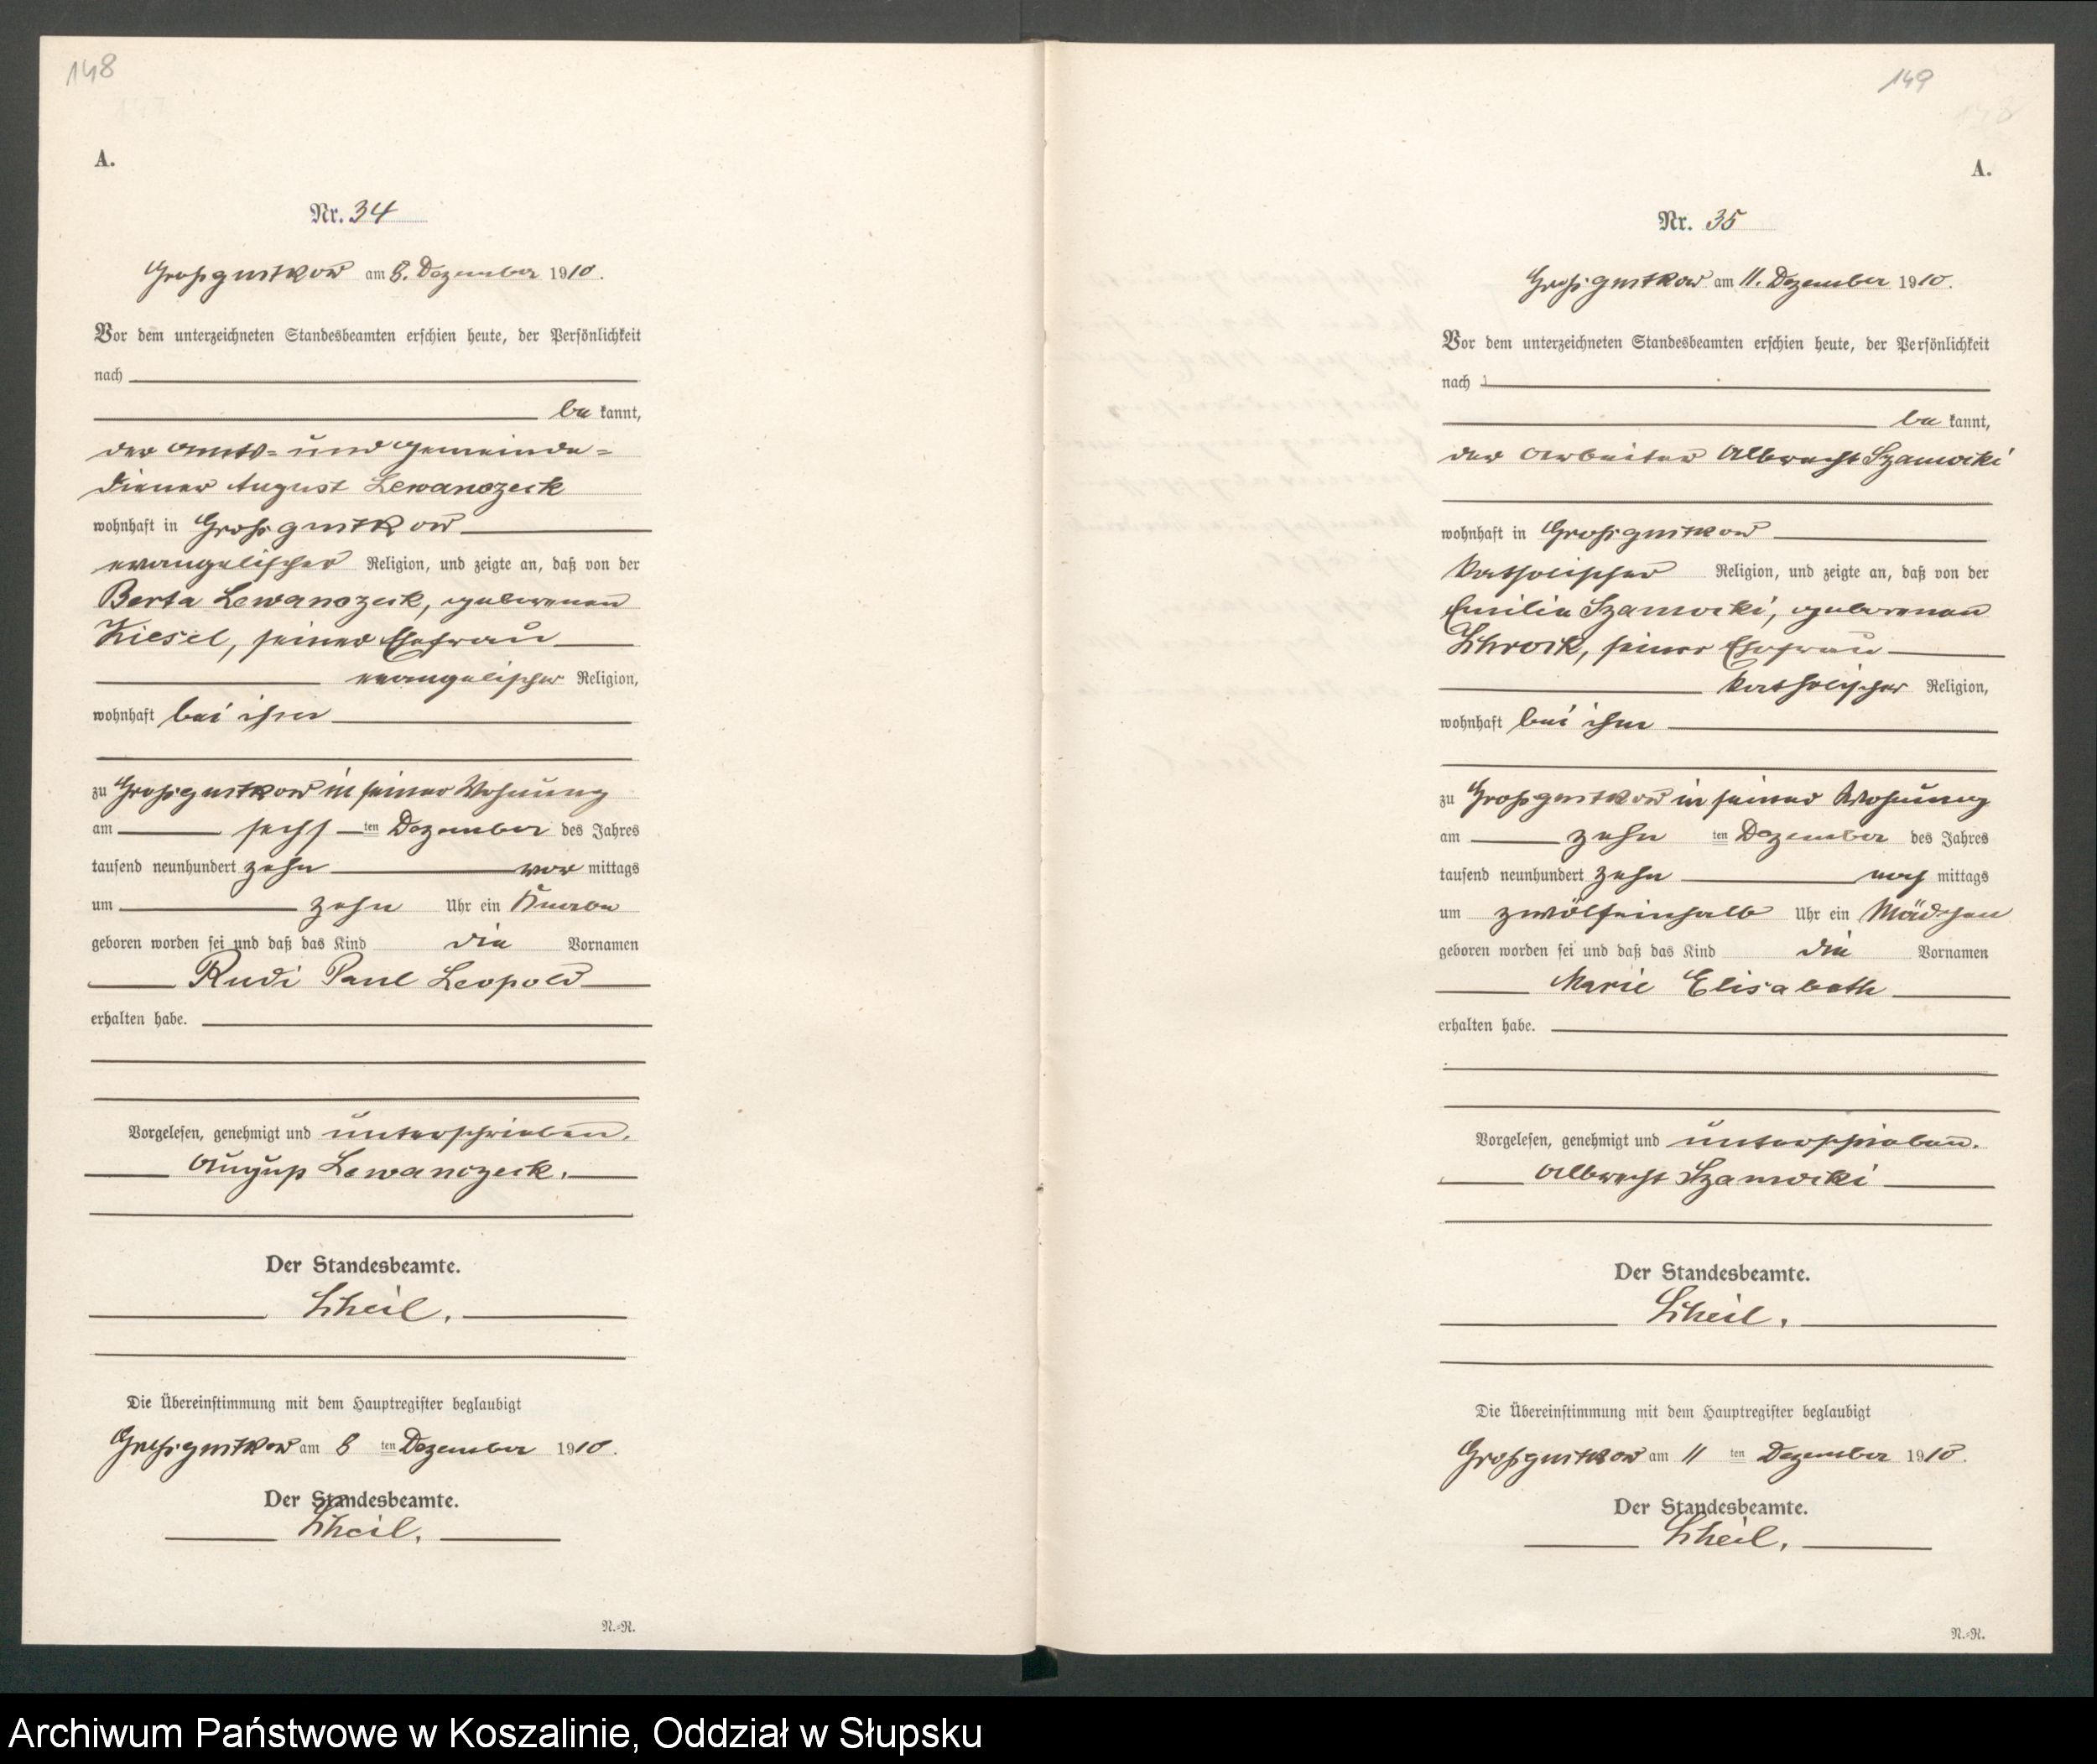 148
A.
Nr. 34
Großgustkow am 8. Dezember 1910.
Vor dem unterzeichneten Standesbeamten erschien heute, der Persönlichkeit
nach
be kannt,
der Amts- und Gemeinde-
diener August Lewanczeck
wohnhaft in Großgustkow
evangelischer Religion, und zeigte an, daß von der
Berta Lewanczeck, geborenen
Kiesel, seiner Ehefrau
evangelischer Religion,
wohnhaft bei ihm
zu Großgustkow in seiner Wohnung
am sechsten Dezember des Jahres
tausend neunhundert zehn vor mittags
um zehn Uhr ein Knabe
geboren worden sei und daß das Kind die Vornamen
Rudi Paul Leopold
erhalten habe.
Vorgelesen, genehmigt und unterschrieben.
August Lewanczeck.
Der Standesbeamte.
Scheil.
Die Übereinstimmung mit dem Hauptregister beglaubigt
Großgustkow am 8 ten Dezember 1910.
Der Standesbeamte.
Scheil.
N.=R.
149
A.
Nr. 35
Großgustkow am 11. Dezember 1910.
Vor dem unterzeichneten Standesbeamten erschien heute, der Persönlichkeit
nach
be kannt,
der Arbeiter Albrecht
wohnhaft in Großgustkow
katholischer Religion, und zeigte an, daß von der
Emilie geborenen
Schrock, seiner Ehefrau
katholischer Religion,
wohnhaft bei ihm
zu Großgustkow in seiner Wohnung
am zehn ten Dezember des Jahres
tausend neunhundert zehn nach mittags
um zwölfeinhalb Uhr ein Mädchen
geboren worden sei und daß das Kind die Vornamen
Marie Elisabeth
erhalten habe.
Vorgelesen, genehmigt und unterschrieben.
Albrecht
Der Standesbeamte.
Scheil.
Die Übereinstimmung mit dem Hauptregister beglaubigt
Großgustkow am 11 ten Dezember 1910.
Der Standesbeamte.
Scheil.
N.=R.
Archiwum Państwowe w Koszalinie, Oddział w Słupsku